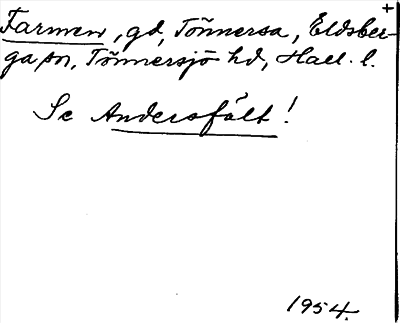 +
Farmen, gd, Tönnersa, Eldsber-
ga sn, Tönnersjö hd, Hall. l.
Se Andersfält!
1954.